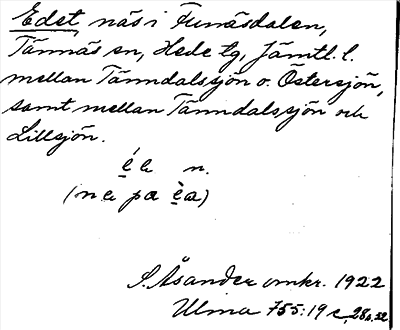 Edet, näs i Funäsdalen,
Tännäs sn, Hede tg, Jämtl. l.
mellan Tänndalssjön o. Östersjön,
samt mellan Tänndalssjön och
Lillsjön.
é e n.
(ne pa èa)
S. Åsander omkr. 1922
Ulma 755:19 c,